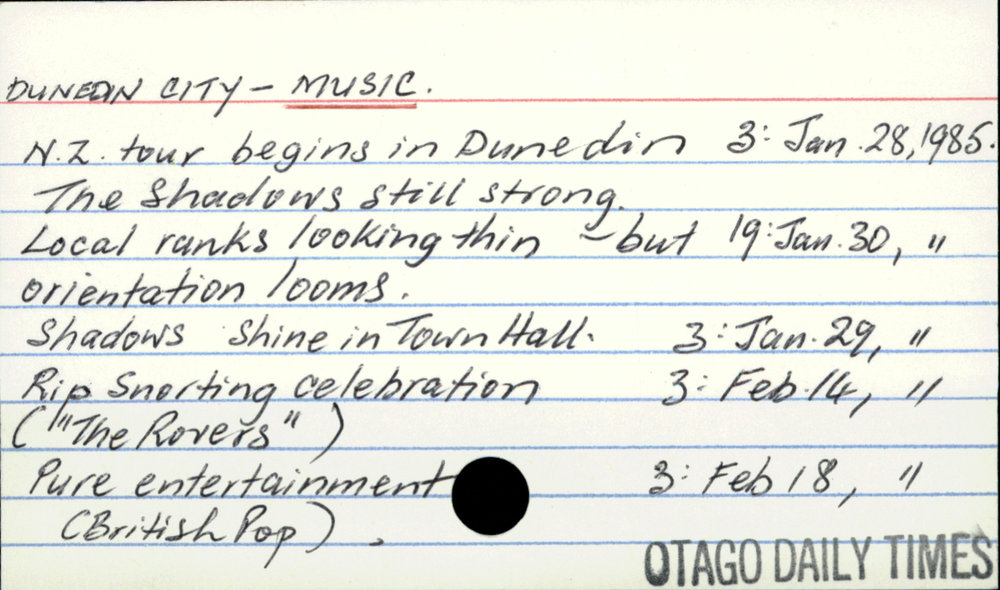 DUNEDIN CITY - MUSIC.
N.Z. tour begins in Dunedin 3: Jan. 28, 1985.
The Shadows still strong.
Local ranks looking thin - but 19: Jan. 30, "
orientation looms.
Shadows shine in Town Hall. 3: Jan. 29, "
Rip Snorting celebration 3: Feb. 14, "
("The Rovers")
Pure entertainment 3: Feb 18, "
(British Pop).
OTAGO DAILY TIMES